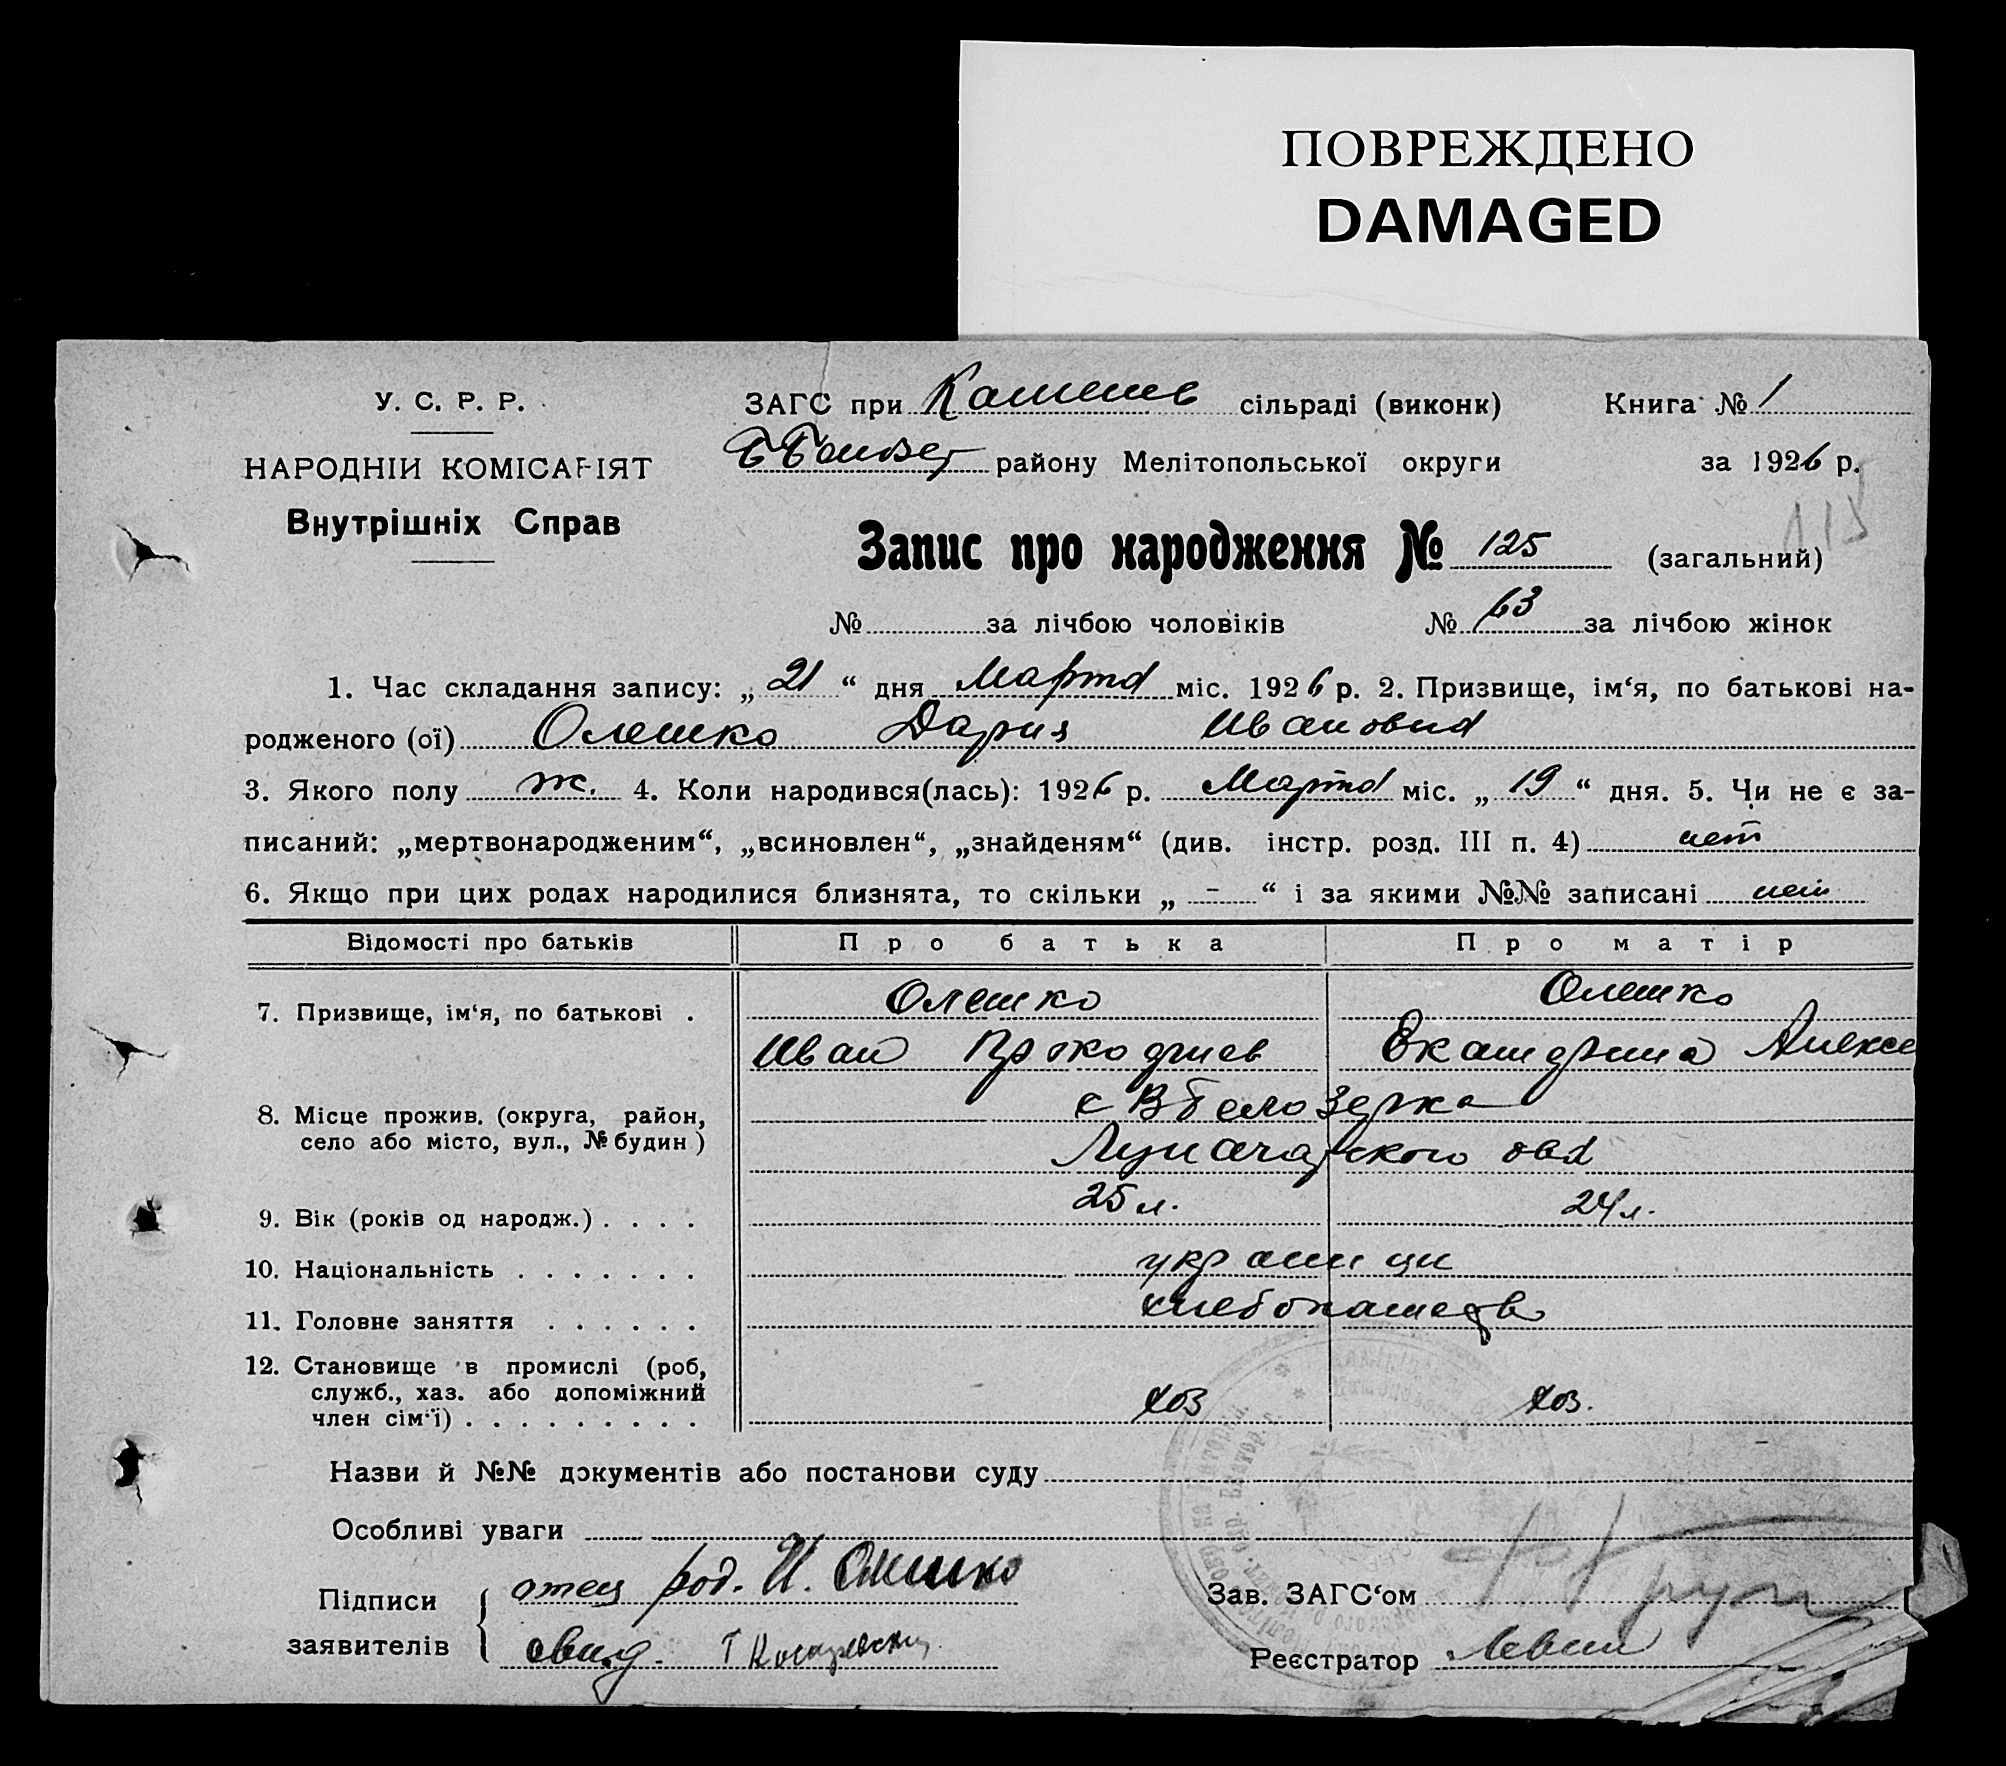 ПОВРЕЖДЕНО
DAMAGED
У. С. Р. Р.
НАРОДНІЙ КОМІСАРІЯТ
Внутрішніх Справ
ЗАГС при сільраді (виконк) Книга № 1
району Мелітопольської округи за 1926 р.
Запис про народження № 125 (загальний)
№ за лічбою чоловіків № 63 за лічбою жінок
1. Час складання запису: „ 21 “ дня Марта міс. 1926 р. 2. Призвище, ім‘я, по батькові на-
родженого (ої) Олешко Дария Ивановна
3. Якого полу ж. 4. Коли народився(лась): 1926 р. Марта міс. „ 19 “ дня. 5. Чи не є за-
писаний: „мертвонародженим“, „всиновлен“, „знайденям“ (див. інстр. розд. III п. 4) нет
6. Якщо при цих родах народилися близнята, то скільки „ - “ і за якими №№ записані нет
Відомості про батьків Про батька Про матір
7. Призвище, ім‘я, по батькові . Олешко Олешко
Иван Екатерина Алексе
8. Місце прожив. (округа, район, с Вбелозерка
село або місто, вул., № будин) Луначарского
9. Вік (років од народж.) . . . . 25 л. 24 л.
10. Національність . . . . . . . украинцы
11. Головне заняття . . . . . . хлебопашедв
12. Становище в промислі (роб,
служб., хаз. або допоміжний
член сім‘ї) . . . . . . . . . хоз хоз.
Назви й №№ документів або постанови суду
Особливі уваги
Підписи
заявителів
отец род. И. Олешко
свид.
Зав. ЗАГС‘ом
Реєстратор Левин